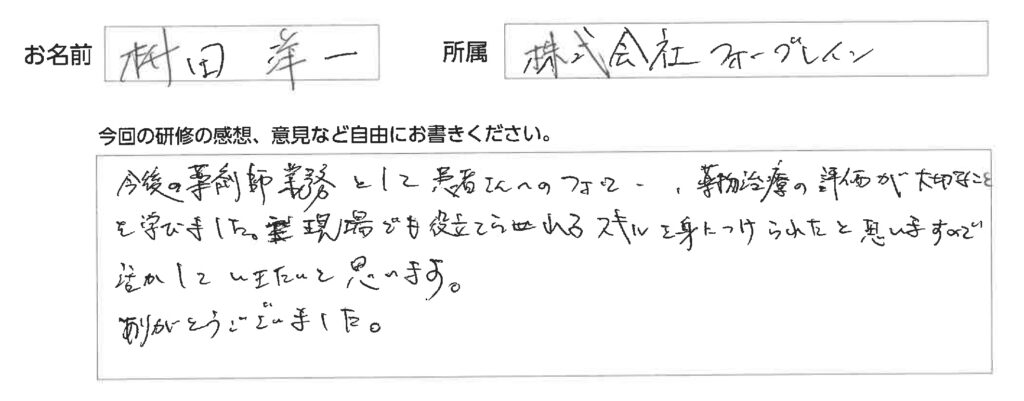 お名前 村田 洋一 所属 株式会社フォーブレイン
今回の研修の感想、意見など自由にお書きください。
今後の薬剤師業務として患者さんへのフォロー、薬物治療の評価が大切なこと
を学びました。現場でも役立てられるスキルを身につけられたと思いますので
活かしていきたいと思います。
ありがとうございました。